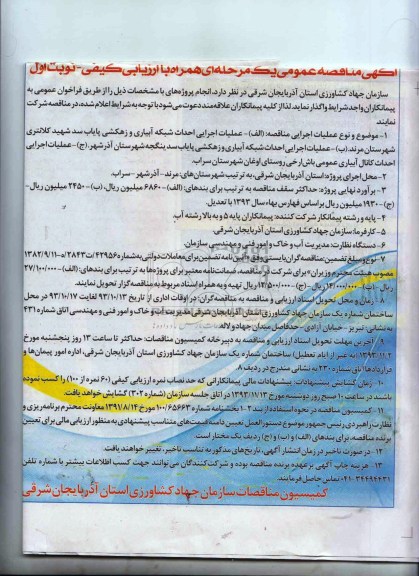 آگهی مناقصه عمومی یک مرحله‌ای همراه با ارزیابی کیفی - نوبت اول
سازمان جهاد کشاورزی استان آذربایجان شرقی در نظر دارد، انجام پروژه‌های با مشخصات ذیل را از طریق فراخوان عمومی به
پیمانکاران واجد شرایط واگذار نماید. لذا از کلیه پیمانکاران علاقه‌مند دعوت می‌شود با توجه به شرایط اعلام شده، در مناقصه شرکت
نمایند.
۱- موضوع و نوع عملیات اجرایی مناقصه: (الف)- عملیات اجرایی احداث شبکه آبیاری و زهکشی پایاب سد شهید کلانتری
شهرستان مرند، (ب)- عملیات اجرایی احداث شبکه آبیاری و زهکشی پایاب سد ینگجه شهرستان آذرشهر، (ج)- عملیات اجرایی
احداث کانال آبیاری عمومی باش ارخی روستای اوغان شهرستان سراب.
۲- محل اجرای پروژه: استان آذربایجان شرقی، به ترتیب شهرستان‌های: مرند- آذرشهر- سراب
۳- برآورد نهایی پروژه: حداکثر سقف مناقصه به ترتیب برای بندهای: (الف)- ۶۸۶۰ میلیون ریال، (ب)- ۲۴۵۰ میلیون ریال-
(ج)- ۱۹۳۰ میلیون ریال براساس فهارس بهاء سال ۱۳۹۳ با تعدیل.
۴- پایه و رشته پیمانکار شرکت کننده: پیمانکاران پایه ۵ و به بالا رشته آب.
۵- کارفرما: سازمان جهاد کشاورزی استان آذربایجان شرقی.
۶- دستگاه نظارت: مدیریت آب و خاک و امور فنی و مهندسی سازمان.
۷- نوع و مبلغ تضمین: مناقصه‌گران بایستی وفق آئین نامه تضمین برای معاملات دولتی به شماره ۴۲۹۵۶/ت۲۸۴۳ه-۱۳۸۲/۹/۱۱
مصوب هیئت محترم وزیران برای شرکت در مناقصه، ضمانت‌نامه معتبر برای پروژه‌ها به ترتیب برای بندهای: (الف)- ۲۷/۱۰۰/۰۰۰
ریال - (ب)- ۱۴/۰۰۰/۰۰۰ ریال - (ج)- ۱۲/۵۰۰/۰۰۰ ریال تهیه و به همراه اسناد مربوط به مناقصه‌گزار تحویل نمایند.
۸- زمان و محل تحویل اسناد ارزیابی و مناقصه به مناقصه‌گران: در اوقات اداری از تاریخ ۹۳/۱۰/۱۳ لغایت ۹۳/۱۰/۱۷ در محل
ساختمان شماره یک سازمان جهاد کشاورزی استان آذربایجان شرقی، مدیریت آب و خاک و امور فنی و مهندسی اتاق شماره ۴۳۱
به نشانی: تبریز- خیابان آزادی- حدفاصل میدان جهاد و لاله.
۹- آخرین مهلت تحویل اسناد ارزیابی و مناقصه به دبیرخانه کمیسیون مناقصات: حداکثر تا ساعت ۱۳ روز پنجشنبه مورخ
۱۳۹۳/۱۱/۲ (به غیر از ایام تعطیل) ساختمان شماره یک سازمان جهاد کشاورزی استان آذربایجان شرقی، اداره امور پیمان‌ها و
قراردادها اتاق شماره ۲۳۰ به نشانی مندرج در ردیف ۸.
۱۰- زمان گشایش پیشنهادات: پیشنهادات مالی پیمانکارانی که حد نصاب نمره ارزیابی کیفی (۶۰ نمره از ۱۰۰) را کسب نموده
باشند در ساعت ۱۰ صبح روز دوشنبه مورخ ۱۳۹۳/۱۱/۱۳ در اتاق جلسه سازمان (شماره ۳۰۲) گشایش خواهد یافت.
۱۱- کمیسیون مناقصه در نحوه استفاده از بند ۲-۱ بخشنامه شماره ۱۰۰/۶۵۶۶۳ مورخ ۱۳۹۱/۸/۱۴ معاونت محترم برنامه‌ریزی و
نظارت راهبردی رئیس جمهور موضوع دستورالعمل تعیین دامنه قیمت‌های متناسب پیشنهادی به منظور ارزیابی مالی برای تعیین
برنده مناقصه، برای بندهای (الف) و (ب) و (ج) ردیف یک مختار است.
۱۲- در صورت تاخیر در زمان انتشار آگهی، تاریخ‌های مذکور به تناسب تاخیر، تغییر خواهند یافت.
۱۳- هزینه چاپ آگهی برعهده برنده مناقصه بوده و شرکت کنندگان می‌توانند جهت کسب اطلاعات بیشتر با شماره تلفن
تماس حاصل فرمایند.
کمیسیون مناقصات سازمان جهاد کشاورزی استان آذربایجان شرقی